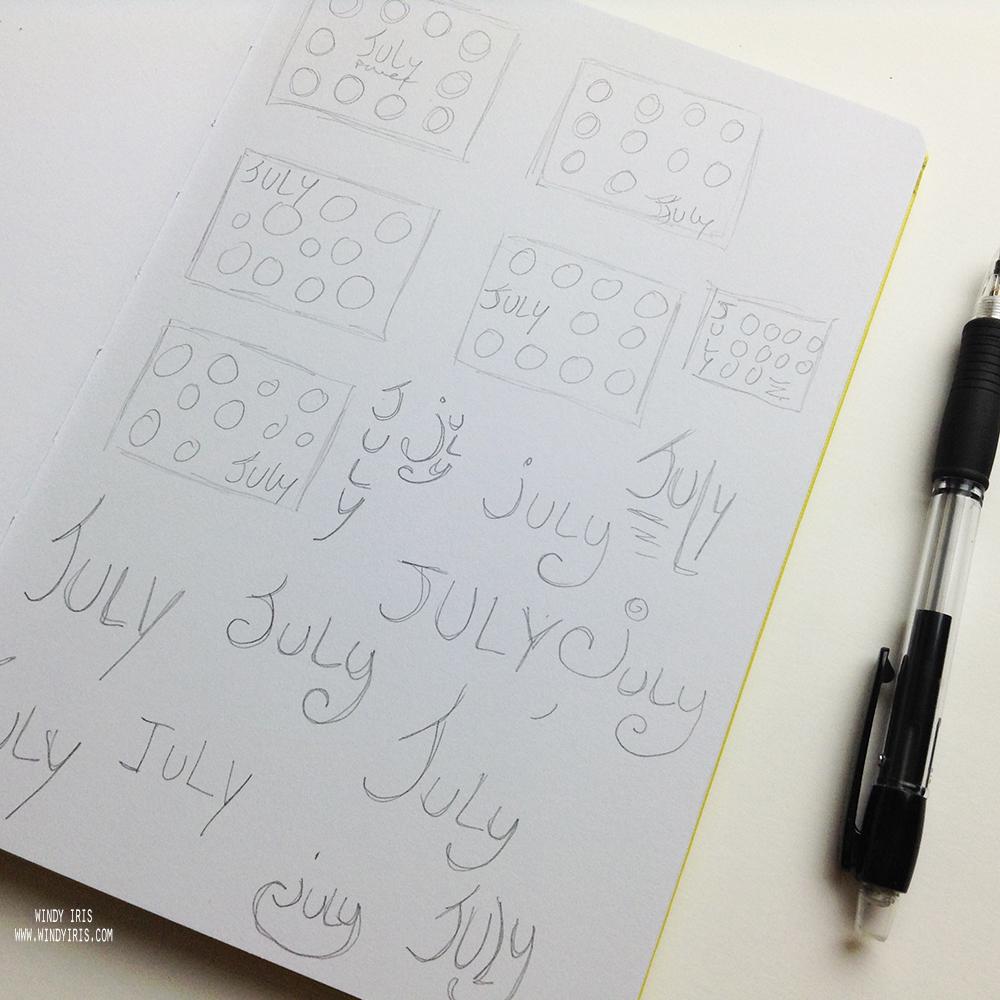 July
July
JULY
JULY
JULY
JULY
JULY
JULY
july
july
JULY
JULY
JULY
JULY
july
ULY
JULY
July
july
July
WINDY IRIS
WWW.WINDYIRIS.COM